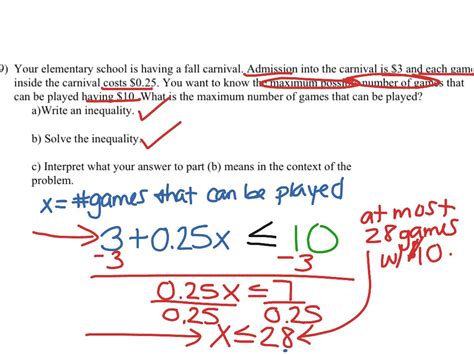 9) Your elementary school is having a fall carnival. Admission into the carnival is $3 and each game
inside the carnival costs $0.25. You want to know the maximum possible number of games that
can be played having $10. What is the maximum number of games that can be played?
a)Write an inequality.
b) Solve the inequality.
c) Interpret what your answer to part (b) means in the context of the
problem.
x= #games that can be played
3+0.25x ≤ 10
-3 -3
0.25x ≤ 7
0.25 0.25
x≤28
at most
28 games
w/ 10.